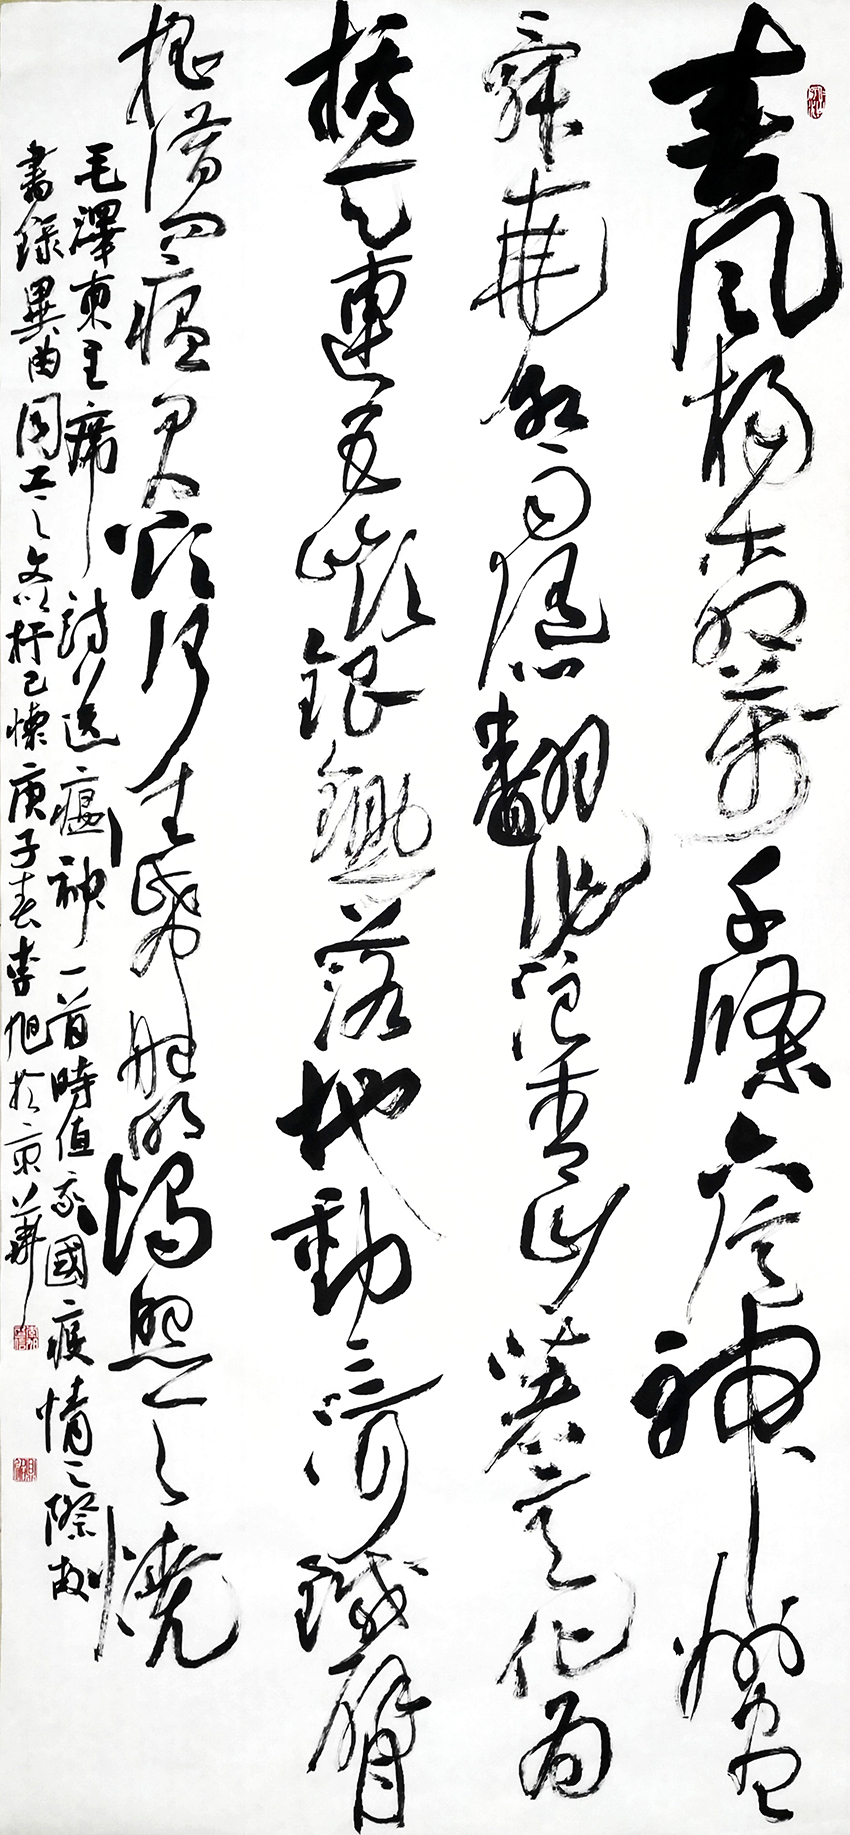 春風楊柳萬千條六億神州盡
舜堯紅雨隨心翻作浪青山著意化為
橋天連五嶺銀鋤落地動三河鐵臂
搖借問瘟君欲何往帋船明燭照天燒
毛澤東主席詩送瘟神一首時值我國疫情之際故
書錄異曲同工之文以抒己懷庚子春李旭於京華